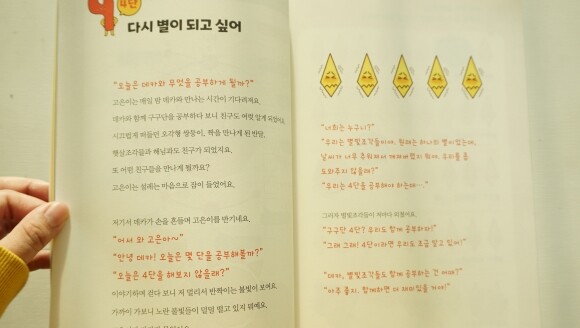 4
4단
다시 별이 되고 싶어
"오늘은 데카와 무엇을 공부하게 될까?"
고은이는 매일 밤 데카와 만나는 시간이 기다려져요.
데카와 함께 구구단을 공부하다 보니 친구도 여럿 알게 되었어요.
시끄럽게 떠들던 오각형 쌍둥이, 짝을 만나게 된 반달,
햇살조각들과 해님과도 친구가 되었지요.
또 어떤 친구들을 만나게 될까요?
고은이는 설레는 마음으로 잠이 들었어요.
저기서 데카가 손을 흔들며 고은이를 반기네요.
"어서 와 고은아~"
"안녕 데카! 오늘은 몇 단을 공부해볼까?"
"오늘은 4단을 해보지 않을래?"
이야기하며 걷다 보니 저 멀리서 반짝이는 불빛이 보여요.
가까이 가보니 노란 불빛들이 덜덜 떨고 있지 뭐예요.
"너희는 누구니?"
"우리는 별빛조각들이야. 원래는 하나의 별이었는데,
날씨가 너무 추워져서 깨져버렸지 뭐야. 우리를 좀
도와주지 않을래?"
"우리는 4단을 공부해야 하는데…."
그러자 별빛조각들이 저마다 외쳤어요.
"구구단 4단? 우리도 함께 공부하자!"
"그래 그래! 4단이라면 우리도 조금 알고 있어!"
"데카, 별빛조각들도 함께 공부하는 것 어때?"
"아주 좋지. 함께하면 더 재미있을 거야!"